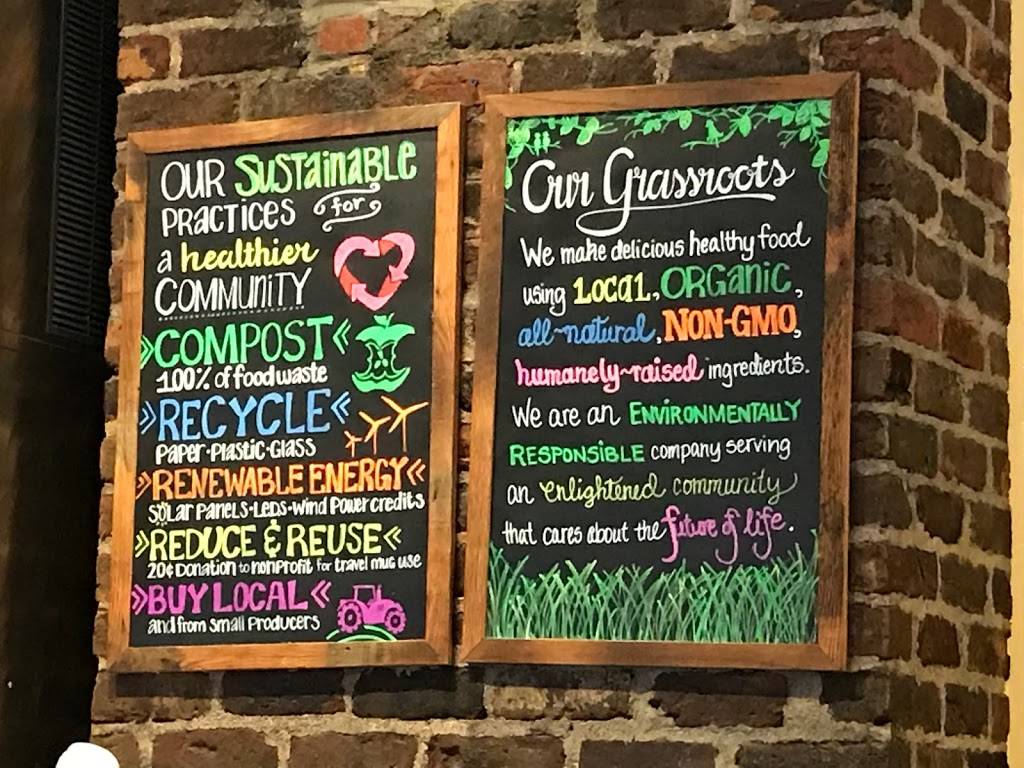 OUR SUSTAINABLE
PRACTICES for
a healthier
COMMUNITY
»COMPOST«
100% of food waste
»RECYCLE«
Paper·Plastic·Glass
»RENEWABLE ENERGY«
SOLAR PANELS·LEDS·WIND POWER CREDITS
»REDUCE & REUSE«
20¢ DONATION to NONPROFIT for travel MUG USE
»BUY LOCAL«
and from Small Producers
Our Grassroots
We make delicious healthy food
using LOCAL, ORGANIC,
all-natural, NON-GMO,
humanely-raised ingredients.
We are an ENVIRONMENTALLY
RESPONSIBLE company serving
an enlightened community
that cares about the future of life.